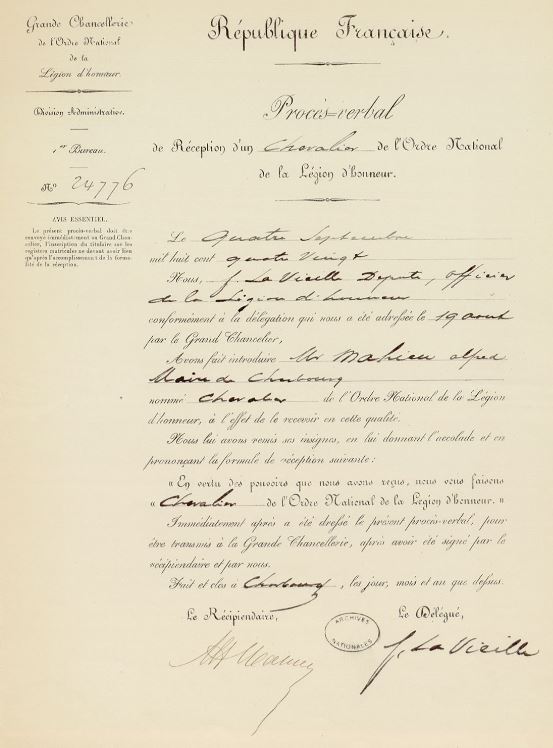 Grande Chancellerie
de l'Ordre National
de la
Légion d'honneur.
Division Administrative.
1er Bureau.
No 24776
AVIS ESSENTIEL.
Le présent procès-verbal doit être
renvoyé immédiatement au Grand Chan-
celier, l'inscription du titulaire sur les
registres matricules ne devant avoir lieu
qu'après l'accomplissement de la forma-
lité de la réception.
République Française.
Procès-verbal
de Réception d'un Chevalier de l'Ordre National
de la Légion d'honneur.
Le quatre Septembre
mil huit cent quatre vingt
Nous, f. La Vieille Depute, officier
de la Légion d'honneur
conformément à la délégation qui nous a été adressée le 19 aout
par le Grand Chancelier,
Avons fait introduire Mr Mahieu alfred
Maire de Cherbourg
nommé Chevalier de l'Ordre National de la Légion
d'honneur, à l'effet de le recevoir en cette qualité.
Nous lui avons remis ses insignes, en lui donnant l'accolade et en
prononçant la formule de réception suivante :
« En vertu des pouvoirs que nous avons reçus, nous vous faisons
« Chevalier de l'Ordre National de la Légion d'honneur. »
Immédiatement après a été dressé le présent procès-verbal, pour
être transmis à la Grande Chancellerie, après avoir été signé par le
récipiendaire et par nous.
Fait et clos à Cherbourg, les jour, mois et an que dessus.
Le Récipiendaire,
Le Délégué,
ARCHIVES
NATIONALES
f. La Vieille